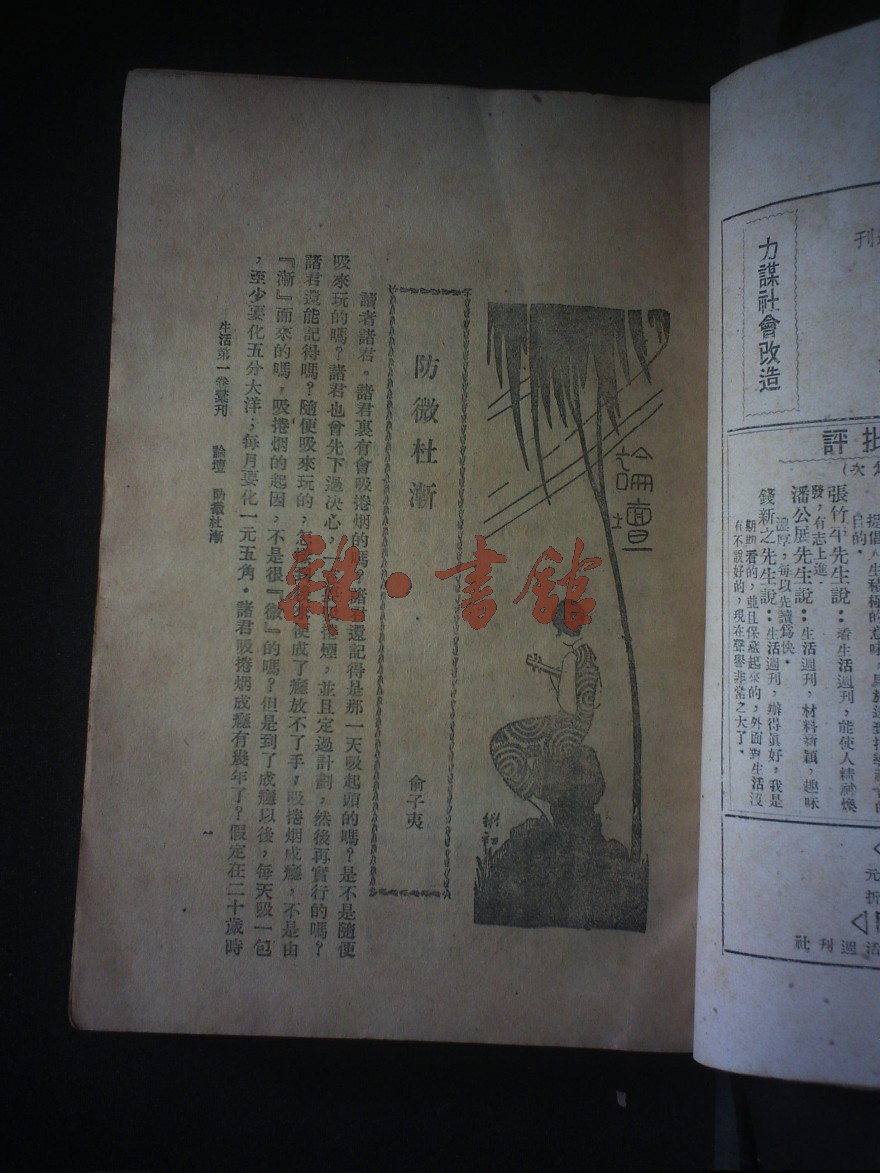 論壇
防微杜漸
俞子夷
讀者諸君。諸君裏有會吸捲烟的嗎?諸君還記得是那一天吸起頭的嗎?是不是隨便
吸來玩的嗎?諸君也曾先下過決心,一 捲煙,並且定過計劃,然後再實行的嗎?
諸君還能記得嗎?隨便吸來玩的, 便成了癮放不了手,吸捲烟成癮,不是由
『漸』而來的嗎,吸捲烟的起因,不是很『微』的嗎?但是到了成癮以後,每天吸一包
,至少要化五分大洋;每月要化一元五角。諸君吸捲烟成癮有幾年了?假定在二十歲時
生活第一卷彙刊 論壇 防微杜漸
一
雜·書館
刊
力謀社會改造
批評
次)
提倡人生積極的意味
目的。
張竹平先生說:看生活週刊,能使人精神煥
發,有志上進。
潘公展先生說:生活週刊,材料新穎,趣味
濃厚,每以先讀爲快。
錢新之先生說:生活週刊,辦得眞好,我是
期期看的,並且保藏起來的,外面對生活沒
有不讚好的,現在聲譽非常之大了。
元
折
活週刊社